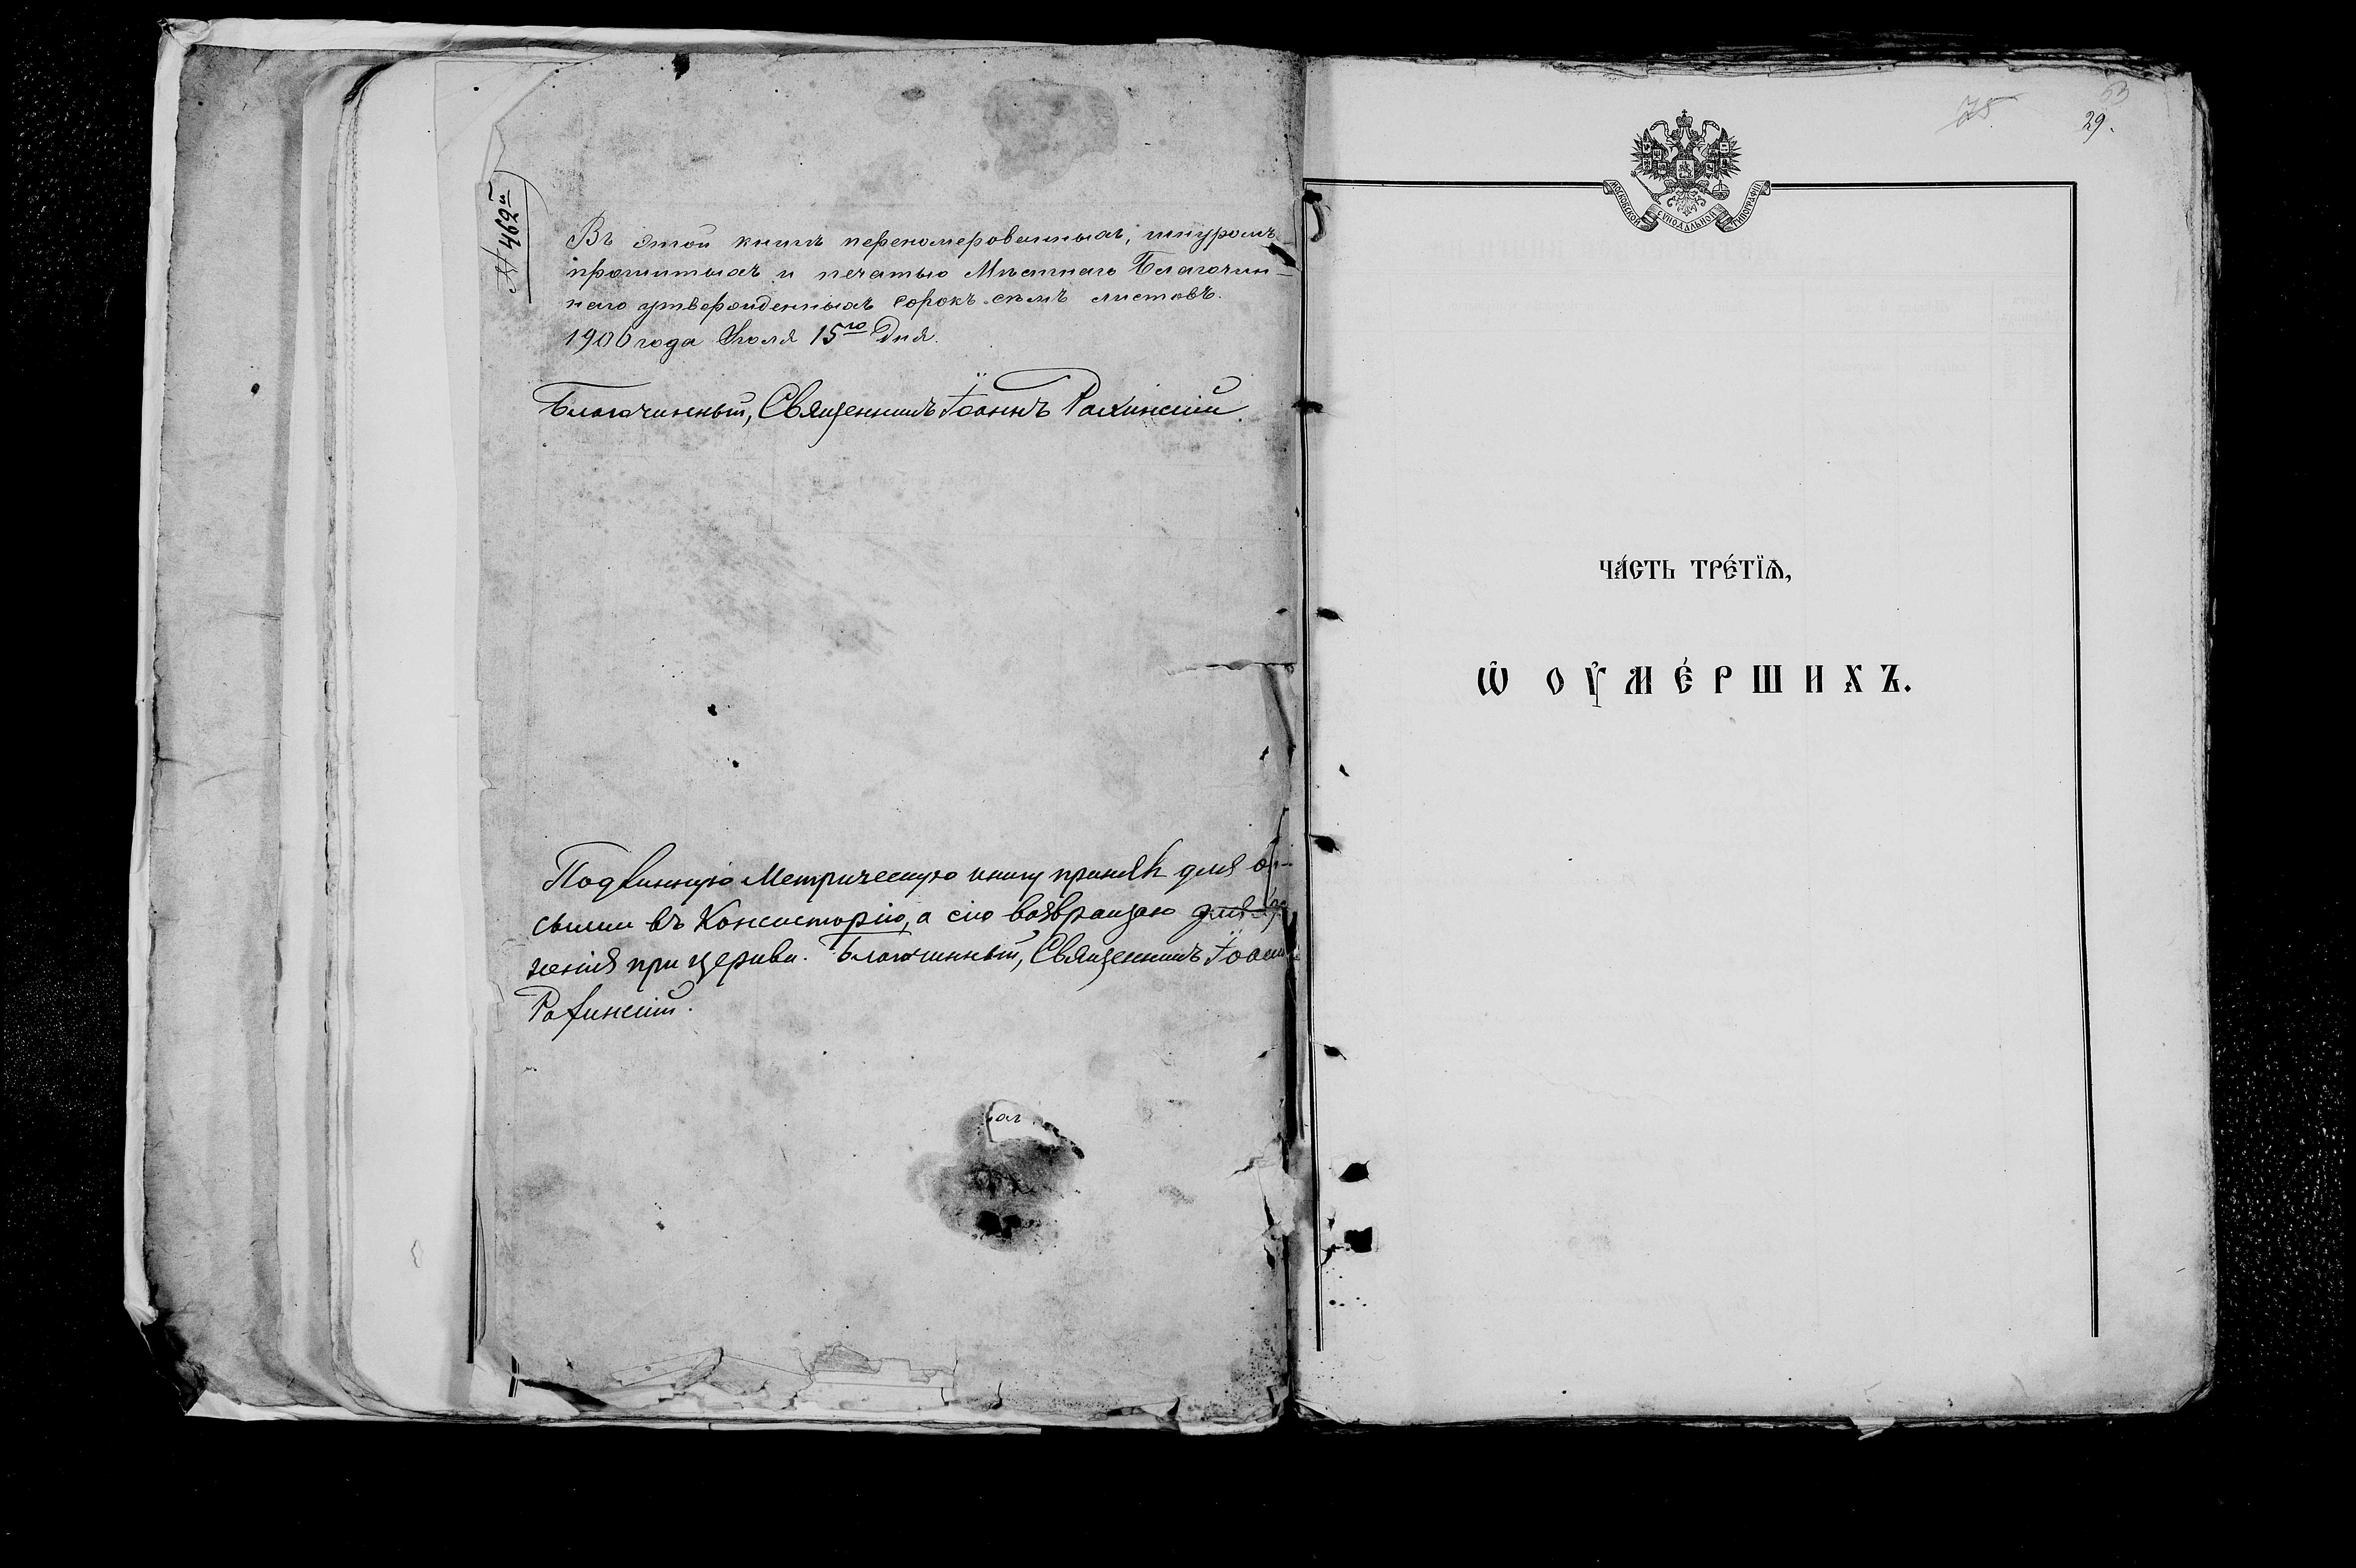 № 462й
Въ этой книгѣ перенумерованныхъ, шнуромъ
прошитыхъ и печатью Мѣстнаго Благочин-
наго утвержденныхъ сорокъ семь листовъ.
1906 года Іюля 15го Дня.
Благочинный, Священникъ Іоаннъ
Подлинную Метрическую книгу принялъ для
сылки въ Консисторію, а сію возвращаю для
ненія при церкви. Благочинный, Священникъ Іоан
29.
МОСКОВСКОЙ СѴНОДАЛЬНОЙ ТИПОГРАФІИ
ЧА́СТЬ ТРЕ́ТЇѦ,
Ѡ҆ ОУ҆МЕ́РШИХЪ.